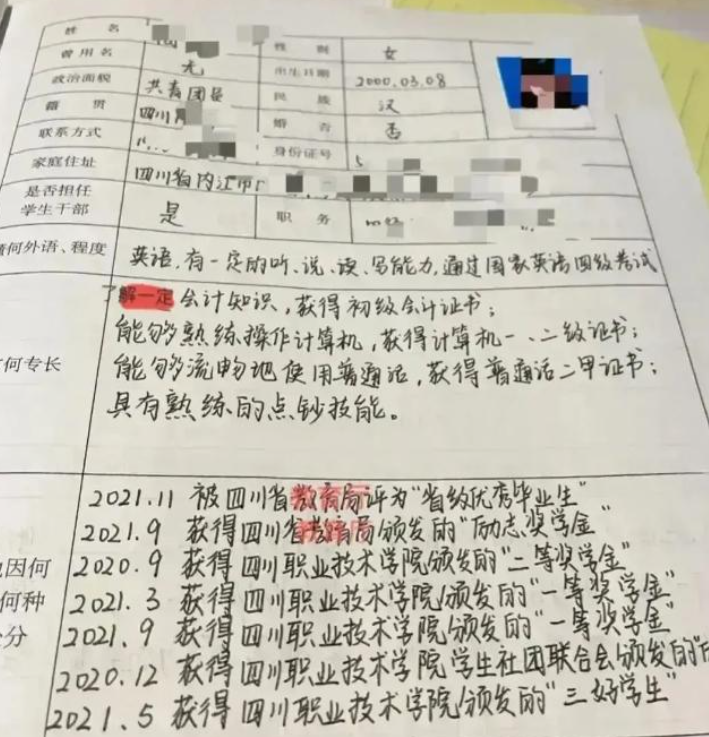 姓 名
性 别 女
曾用名 无
出生日期 2000.03.08
政治面貌 共青团员
民 族 汉
籍 贯 四川
婚 否 否
联系方式
身份证号
家庭住址 四川省内江市
是否担任
学生干部 是 职 务
何外语、程度 英语,有一定的听、说、读、写能力,通过国家英语四级考试
何专长
了解一定会计知识,获得初级会计证书;
能够熟练操作计算机,获得计算机一、二级证书;
能够流畅地使用普通话,获得普通话二甲证书;
具有熟练的点钞技能。
因何
何种
分
2021.11 被四川省教育局评为“省级优秀毕业生”
2021.9 获得四川省教育局颁发的“励志奖学金”
2020.9 获得四川职业技术学院颁发的“二等奖学金”
2021.3 获得四川职业技术学院颁发的“一等奖学金”
2021.9 获得四川职业技术学院颁发的“一等奖学金”
2020.12 获得四川职业技术学院学生社团联合会颁发的“
2021.5 获得四川职业技术学院颁发的“三好学生”